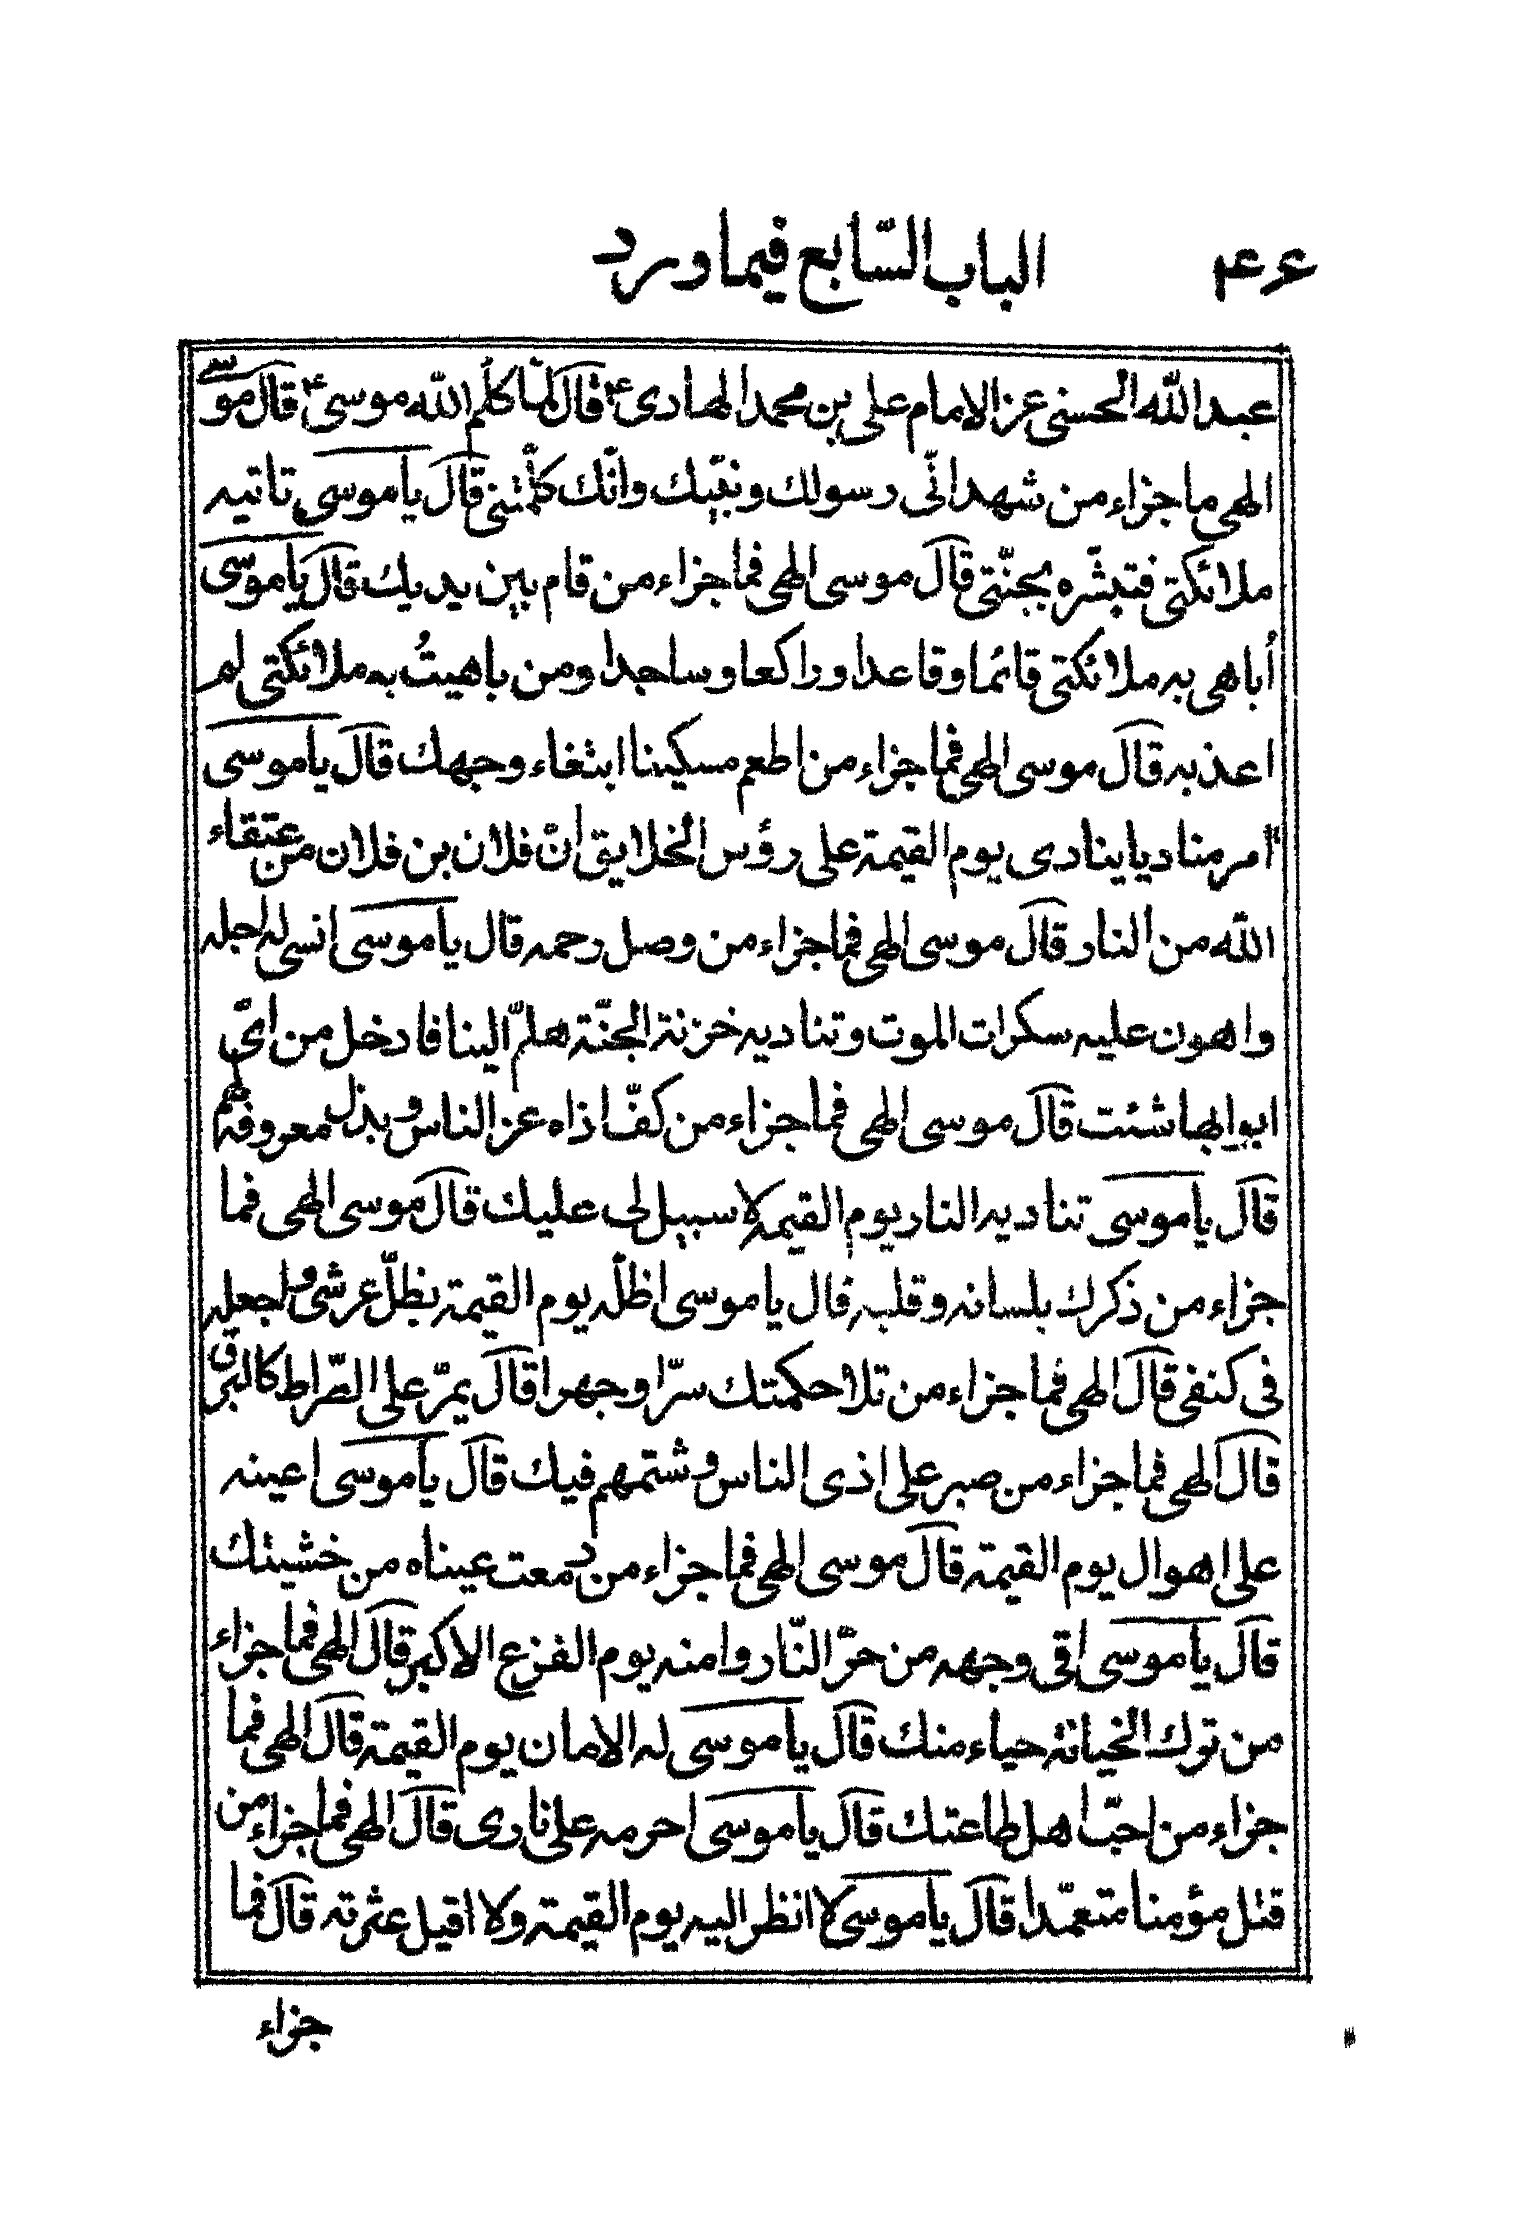 ۴۶ الباب السّابع فيما ورد
عبد الله الحسنى عن الامام على بن محمد الهادى ۴ قال لمّا كلّم الله موسى ۴ قال موسى
الهى ما جزاء من شهد انّى رسولك ونبيّك وانّك كلّمتنى قال يا موسى تاتيه
ملائكتى فتبشّره بجنّتى قال موسى الهى فما جزاء من قام بين يديك قال يا موسى
أباهى به ملائكتى قائما وقاعدا وراكعا وساجدا ومن باهيتُ به ملائكتى لم
اعذبه قال موسى الهى فما جزاء من اطعم مسكينا ابتغاء وجهك قال يا موسى
آمر مناديا ينادى يوم القيمة على رؤس الخلايق انّ فلان بن فلان من عتقاء
الله من النار قال موسى الهى فما جزاء من وصل رحمه قال يا موسى انسى له اجله
واهون عليه سكرات الموت وتناديه خزنة الجنّة هلمّ الينا فادخل من اىّ
ابوابها شئت قال موسى الهى فما جزاء من كفّ اذاه عن الناس وبذل معروفه لهم
قال يا موسى تناديه النار يوم القيمة لا سبيل لى عليك قال موسى الهى فما
جزاء من ذكرك بلسانه وقلبه قال يا موسى اظلّه يوم القيمة بظلّ عرشى واجعله
فى كنفى قال الهى فما جزاء من تلا حكمتك سرّا وجهرا قال يمرّ على الصّراط كالبرق
قال الهى فما جزاء من صبر على اذى الناس وشتمهم فيك قال يا موسى اعينه
على اهوال يوم القيمة قال موسى الهى فما جزاء من دمعت عيناه من خشيتك
قال يا موسى اقى وجهه من حرّ النّار وامنه يوم الفزع الاكبر قال الهى فما جزاء
من ترك الخيانة حياء منك قال يا موسى له الامان يوم القيمة قال الهى فما
جزاء من احبّ اهل طاعتك قال يا موسى احرمه على نارى قال الهى فما جزاء من
قتل مؤمنا متعمّدا قال يا موسى لا انظر اليه يوم القيمة ولا اقيل عثرته قال فما
جزاء